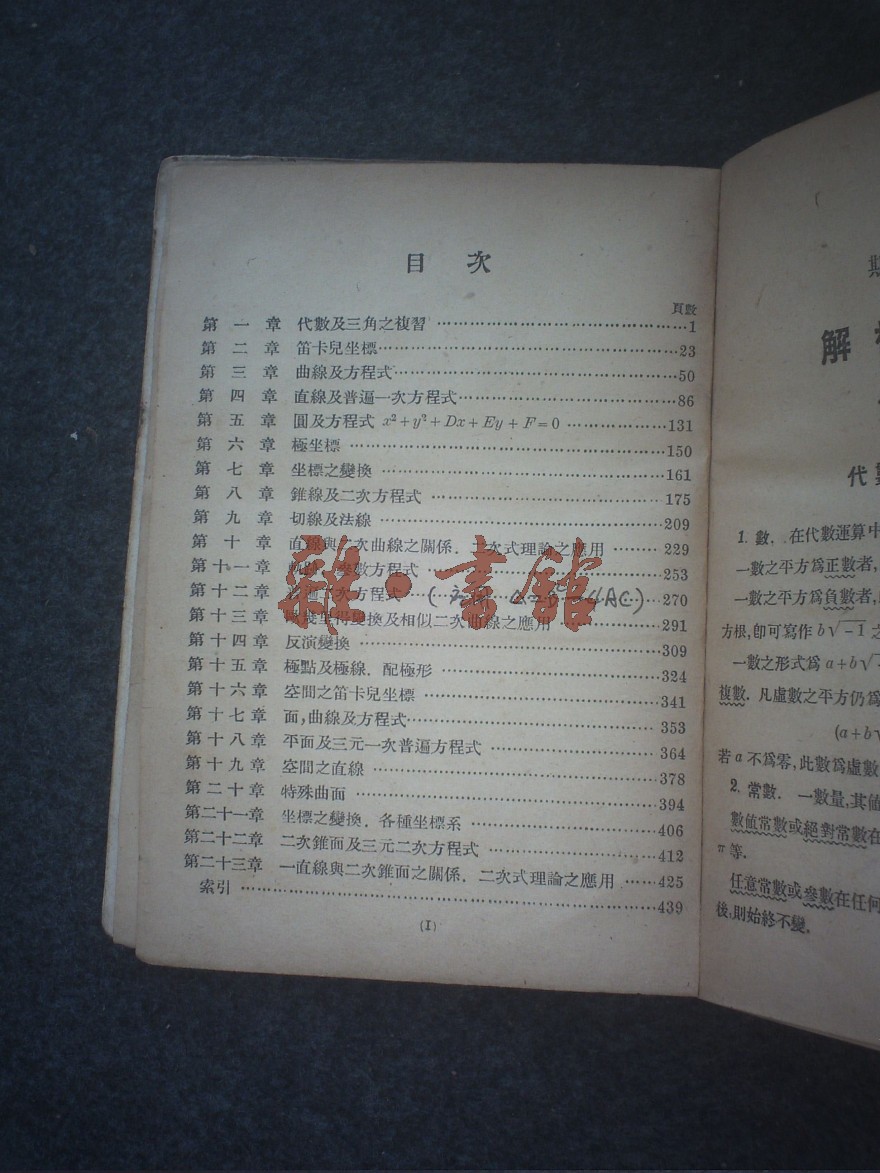 目 次
頁數
第一章 代數及三角之複習 ……1
第二章 笛卡兒坐標……23
第三章 曲線及方程式……50
第四章 直線及普遍一次方程式……86
第五章 圓及方程式 x²+y²+Dx+Ey+F=0 ……131
第六章 極坐標 ……150
第七章 坐標之變換 ……161
第八章 錐線及二次方程式 ……175
第九章 切線及法線……209
第十章 直線與二次曲線之關係．二次式理論之應用 ……229
第十一章 軌跡．參數方程式……253
第十二章 普遍二次方程式 ……270
第十三章 歐幾里得變換及相似二次曲線之應用 ……291
第十四章 反演變換……309
第十五章 極點及極線．配極形 ……324
第十六章 空間之笛卡兒坐標 ……341
第十七章 面,曲線及方程式…… 353
第十八章 平面及三元一次普遍方程式 ……364
第十九章 空間之直線 ……378
第二十章 特殊曲面 ……394
第二十一章 坐標之變換．各種坐標系 ……406
第二十二章 二次錐面及三元二次方程式 ……412
第二十三章 一直線與二次錐面之關係．二次式理論之應用 ……425
索引 ……439
(I)
雜·書館
解
代數
1. 數．在代數運算中
一數之平方爲正數者,
一數之平方爲負數者,
方根,卽可寫作 b√-1 之
一數之形式爲 a+b√
複數．凡虛數之平方仍爲
(a+b√
若 a 不爲零,此數爲虛數
2. 常數．一數量,其値
數値常數或絕對常數在
π 等．
任意常數或參數在任何
後,則始終不變．